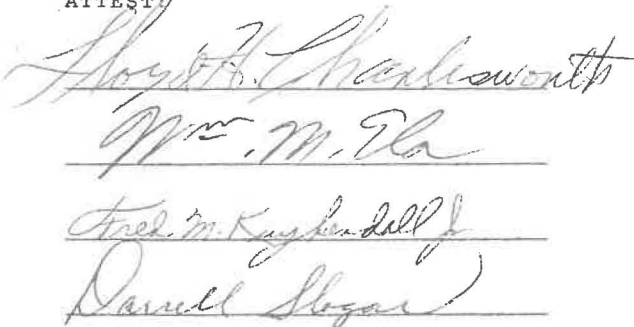 ATTEST:
Floyd H. Charlesworth
Wm. M. Ela
Fred M. Kuykendall Jr
Darrell Slogar